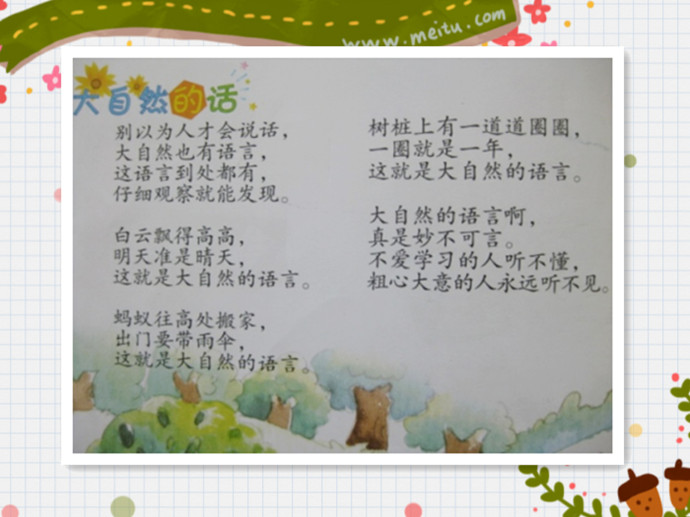 www.meitu.com
大自然的话
别以为人才会说话，
大自然也有语言，
这语言到处都有，
仔细观察就能发现。
白云飘得高高，
明天准是晴天，
这就是大自然的语言。
蚂蚁往高处搬家，
出门要带雨伞，
这就是大自然的语言。
树桩上有一道道圈圈，
一圈就是一年，
这就是大自然的语言。
大自然的语言啊，
真是妙不可言。
不爱学习的人听不懂，
粗心大意的人永远听不见。